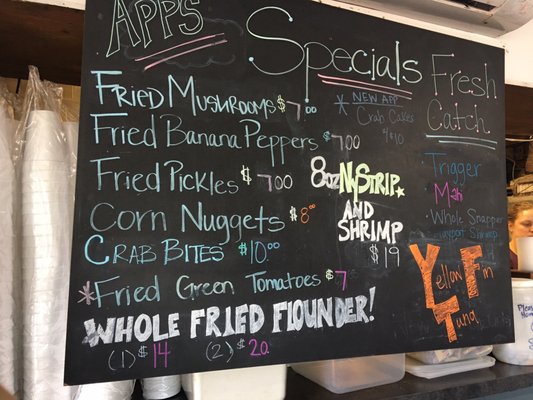 APPS
Fried Mushrooms $7.00
Fried Banana Peppers $7.00
Fried Pickles $7.00
Corn Nuggets $8.00
Crab Bites $10.00
*Fried Green Tomatoes $7
Whole Fried Flounder!
(1) $14 (2) $20
Specials
* New App
Crab Cakes
$10
8oz NY Strip
and
Shrimp
$19
Fresh
Catch
· Trigger
· Mahi
· Whole Snapper
Shrimp
Yellow Fin
Tuna
Please